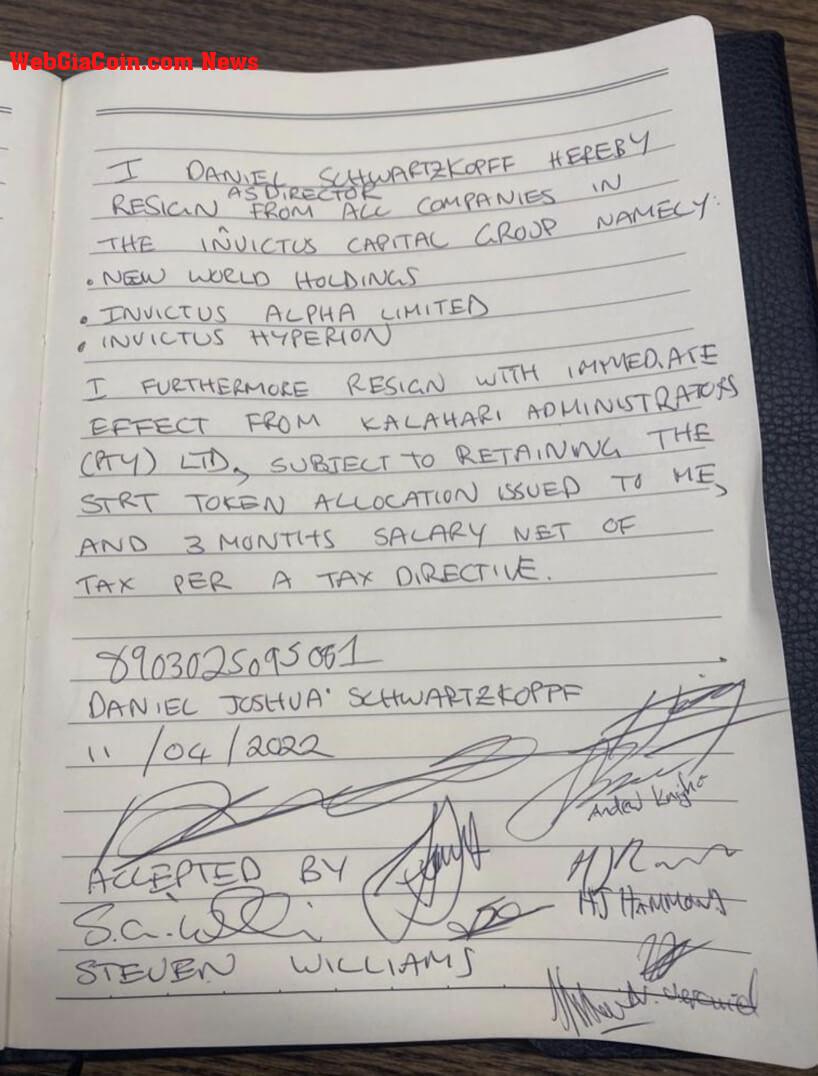 WebGiaCoin.com News
I DANIEL SCHWARTZKOPFF HEREBY
AS DIRECTOR
RESIGN FROM ALL COMPANIES IN
THE INVICTUS CAPITAL GROUP NAMELY:
• NEW WORLD HOLDINGS
• INVICTUS ALPHA LIMITED
• INVICTUS HYPERION
I FURTHERMORE RESIGN WITH IMMEDIATE
EFFECT FROM KALAHARI ADMINISTRATORS
(PTY) LTD, SUBJECT TO RETAINING THE
STRT TOKEN ALLOCATION ISSUED TO ME,
AND 3 MONTHS SALARY NET OF
TAX PER A TAX DIRECTIVE.
8903025095081
DANIEL JOSHUA SCHWARTZKOPFF
11/04/2022
Andrew Knight
ACCEPTED BY
HJ HAMMOND
STEVEN WILLIAMS